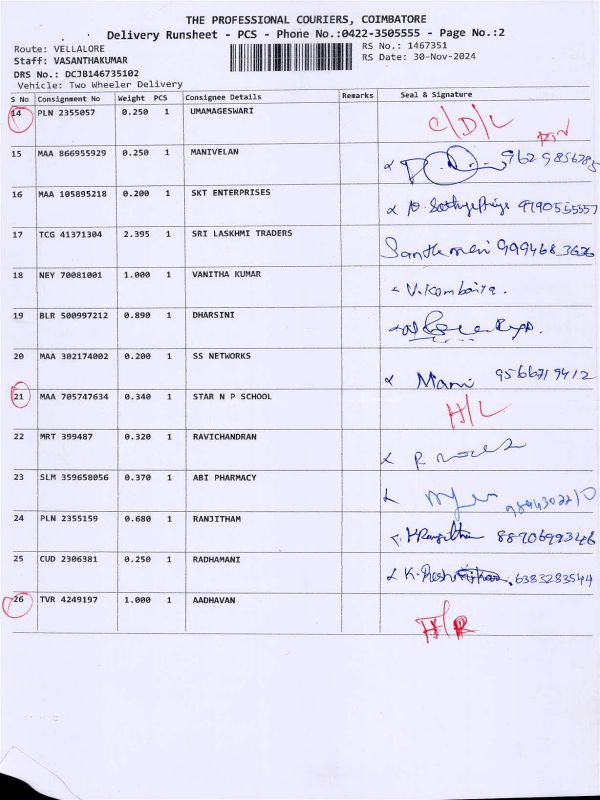 THE PROFESSIONAL COURIERS, COIMBATORE
Delivery Runsheet - PCS - Phone No.:0422-3505555 - Page No.:2
Route: VELLALORE RS No.: 1467351
Staff: VASANTHAKUMAR RS Date: 30-Nov-2024
DRS No.: DCJB146735102
Vehicle: Two Wheeler Delivery
S No Consignment No Weight PCS Consignee Details Remarks Seal & Signature
14 PLN 2355057 0.250 1 UMAMAGESWARI C/D/L
15 MAA 866955929 0.250 1 MANIVELAN
16 MAA 105895218 0.200 1 SKT ENTERPRISES 9790555557
17 TCG 41371304 2.395 1 SRI LASKHMI TRADERS 9994683636
18 NEY 70081001 1.000 1 VANITHA KUMAR
19 BLR 500997212 0.890 1 DHARSINI
20 MAA 302174002 0.200 1 SS NETWORKS Mani 9566719412
21 MAA 705747634 0.340 1 STAR N P SCHOOL H/L
22 MRT 399487 0.320 1 RAVICHANDRAN
23 SLM 359658056 0.370 1 ABI PHARMACY
24 PLN 2355159 0.680 1 RANJITHAM 8870699346
25 CUD 2306381 0.250 1 RADHAMANI 6383283544
26 TVR 4249197 1.000 1 AADHAVAN